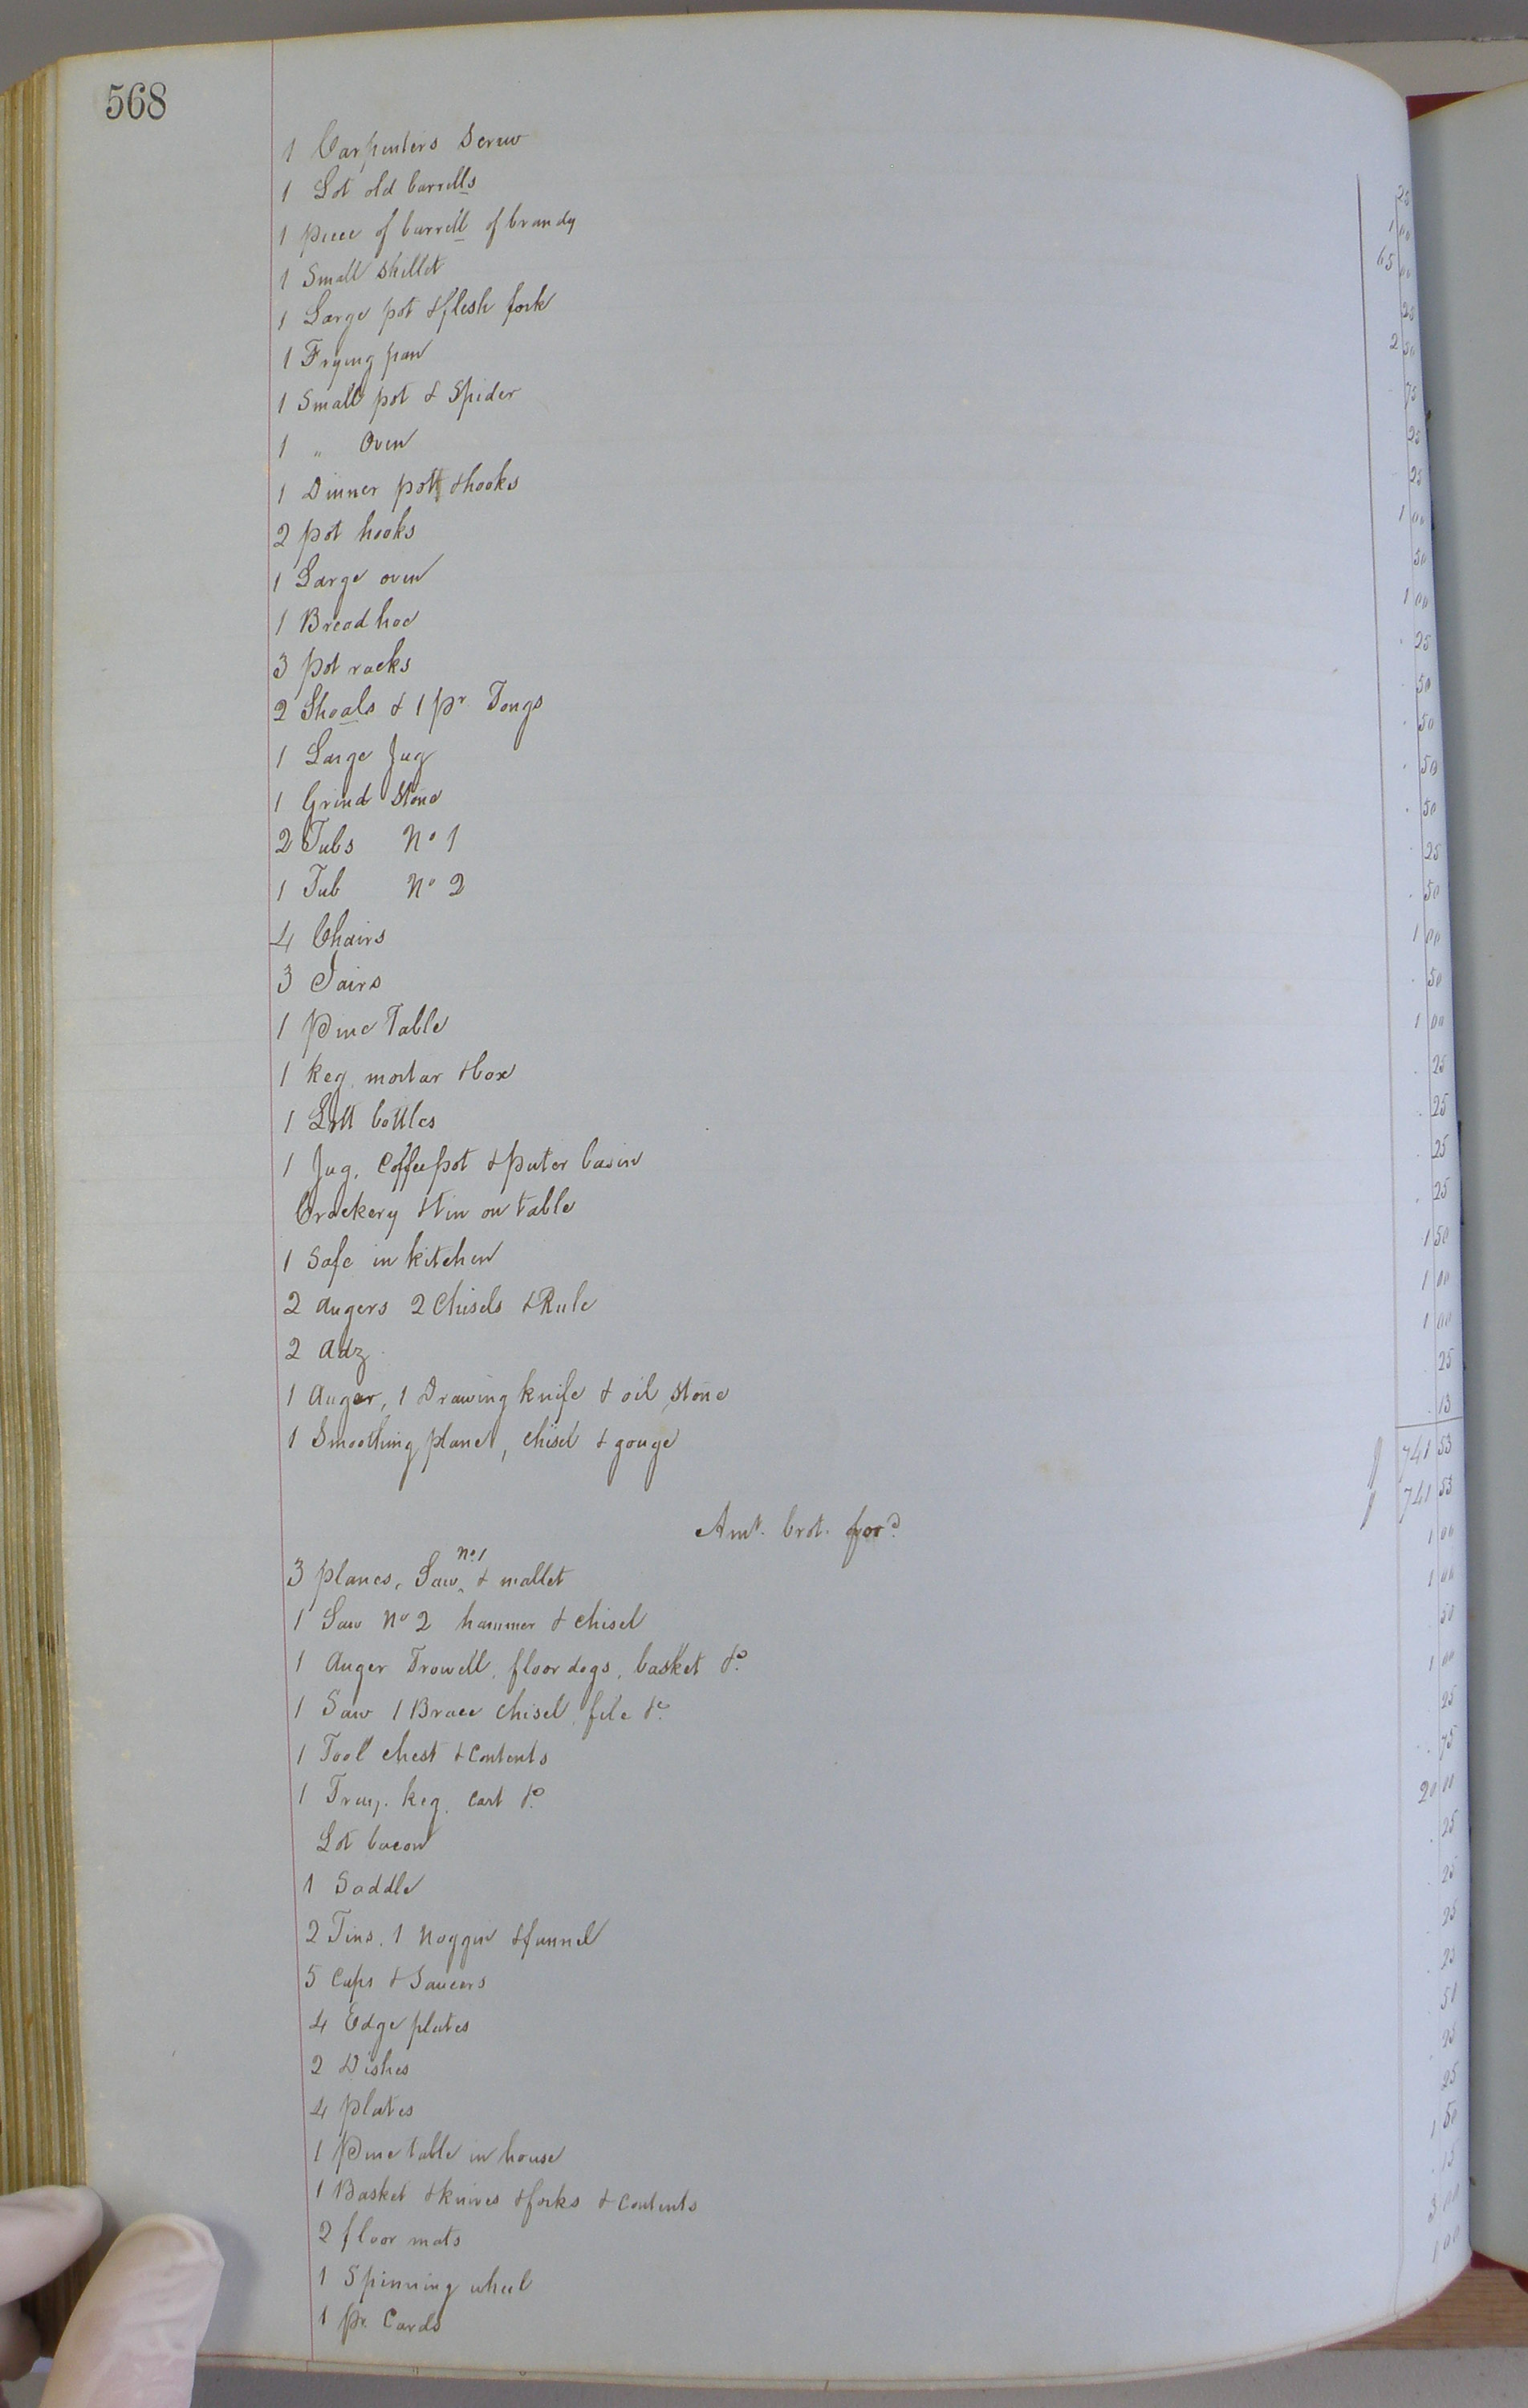 568
1 Carpenters Screw 25
1 Lot old barrells 1 00
1 piece of barrell of brandy 65 00
1 Small skillet 25
1 Large pot & flesh fork 2 50
1 Frying pan 75
1 Small pot & Spider 25
1 " Oven 25
1 Dinner pott & hooks 1 00
2 pot hooks 50
1 Large oven 1 00
1 Bread hoe 25
3 pot racks 50
2 Shoals & 1 pr Tongs 50
1 Large Jug 50
1 Grind Stone 50
2 Tubs No 1 25
1 Tub No 2 50
4 Chairs 1 00
3 Jairs 50
1 Pine Table 1 00
1 keg, mortar & box 25
1 Lott bottles 25
1 Jug, Coffee pot & puter basin 25
Crockery & tin on table 25
1 Safe in kitchen 1 50
2 augers 2 Chisels & Rule 1 00
2 Adz 1 00
1 Auger, 1 Drawing knife & oil stone 25
1 Smoothing plane, chisel & gouge 13
741 53
Amt. brot. ford 741 53
3 planes, Saw no 1 & mallet 1 00
1 Saw No 2 hammer & chisel 1 00
1 Auger Trowell, floor dogs, basket &c 50
1 Saw 1 Brace Chisel, file &c 1 00
1 Tool chest & Contents 25
1 Tray, keg, cart &c 75
Lot bacon 20 00
1 Saddle 25
2 Tins, 1 noggin & funnel 25
5 Cups & Saucers 25
4 Edge plates 25
2 Dishes 50
4 plates 25
1 Pine table in house 25
1 Basket & knives & forks & Contents 1 50
2 floor mats 15
1 Spinning wheel 3 00
1 pr. Cards 1 00